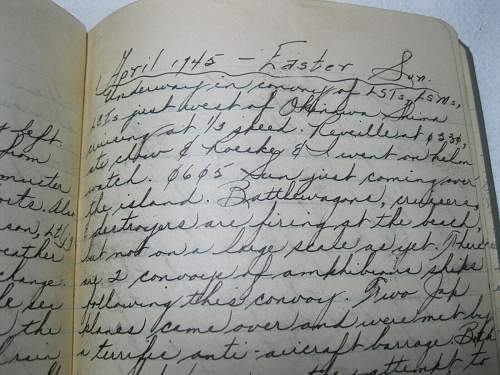 y left.
from
Also
son, Lt/
weather
change.
le sec
the
rain
April 1945 - Easter Sun.
Underway in convoy of LSTs, LSMs,
just west of Okinawa Shima
cruising at 1/3 speed. Reveille at 0330,
ate chow & Korsky & I went on helm
watch. 0605 Sun just coming over
the island. Battlewagons, cruisers,
destroyers are firing at the beach,
but not on a large scale as yet. There
are 2 convoys of amphibious ships
following this convoy. Two Jap
planes came over and were met by
a terrific anti-aircraft barrage. Both
the attempt to